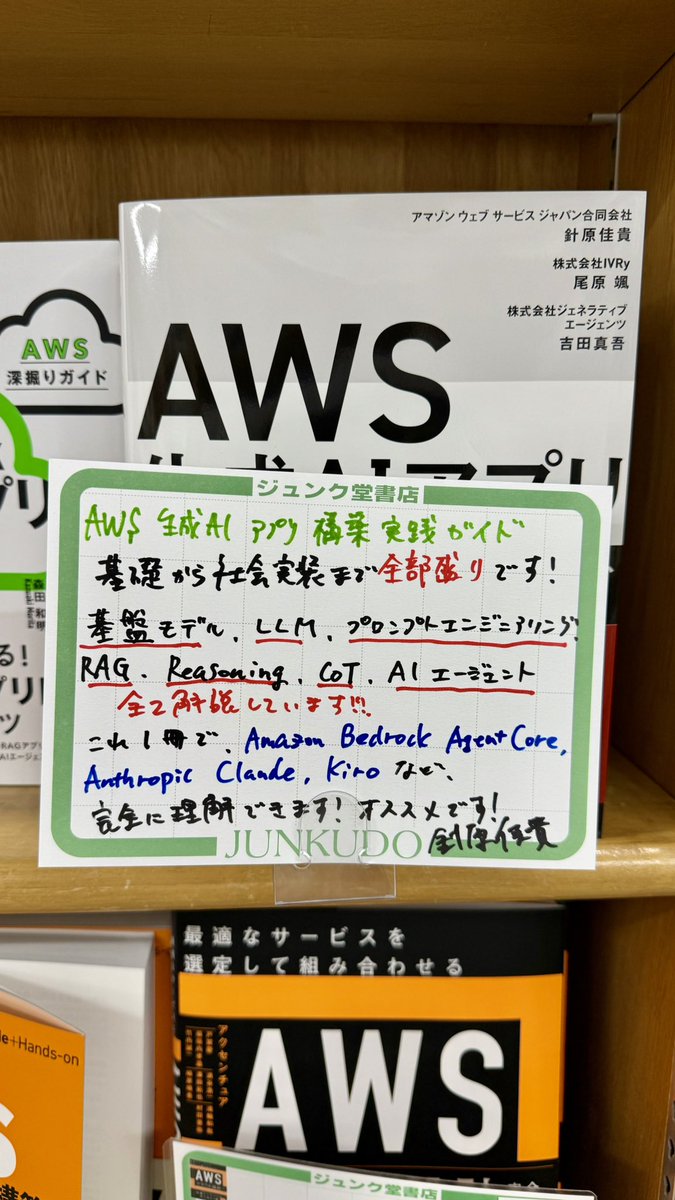 アマゾン ウェブ サービス ジャパン合同会社
針原佳貴
株式会社IVRy
尾原 颯
株式会社ジェネラティブ
エージェンツ
吉田真吾
AWS
生成AIアプリ
AWS
深掘りガイド
プリ
森田 和明
る!
プリ
ツ
RAGアプリ
AIエージェン
ジュンク堂書店
AWS 生成AI アプリ 構築 実践 ガイド
基礎から社会実装まで全部盛りです!
基盤モデル、LLM、プロンプトエンジニアリング、
RAG、Reasoning、CoT、AI エージェント
全て解説しています!!!
これ1冊で、Amazon Bedrock AgentCore,
Anthropic Claude, Kiro など、
完全に理解できます! オススメです!
JUNKUDO 針原佳貴
最適なサービスを
選定して組み合わせる
アクセンチュア
AWS
de+Hands-on
S
ジュンク堂書店
AWS